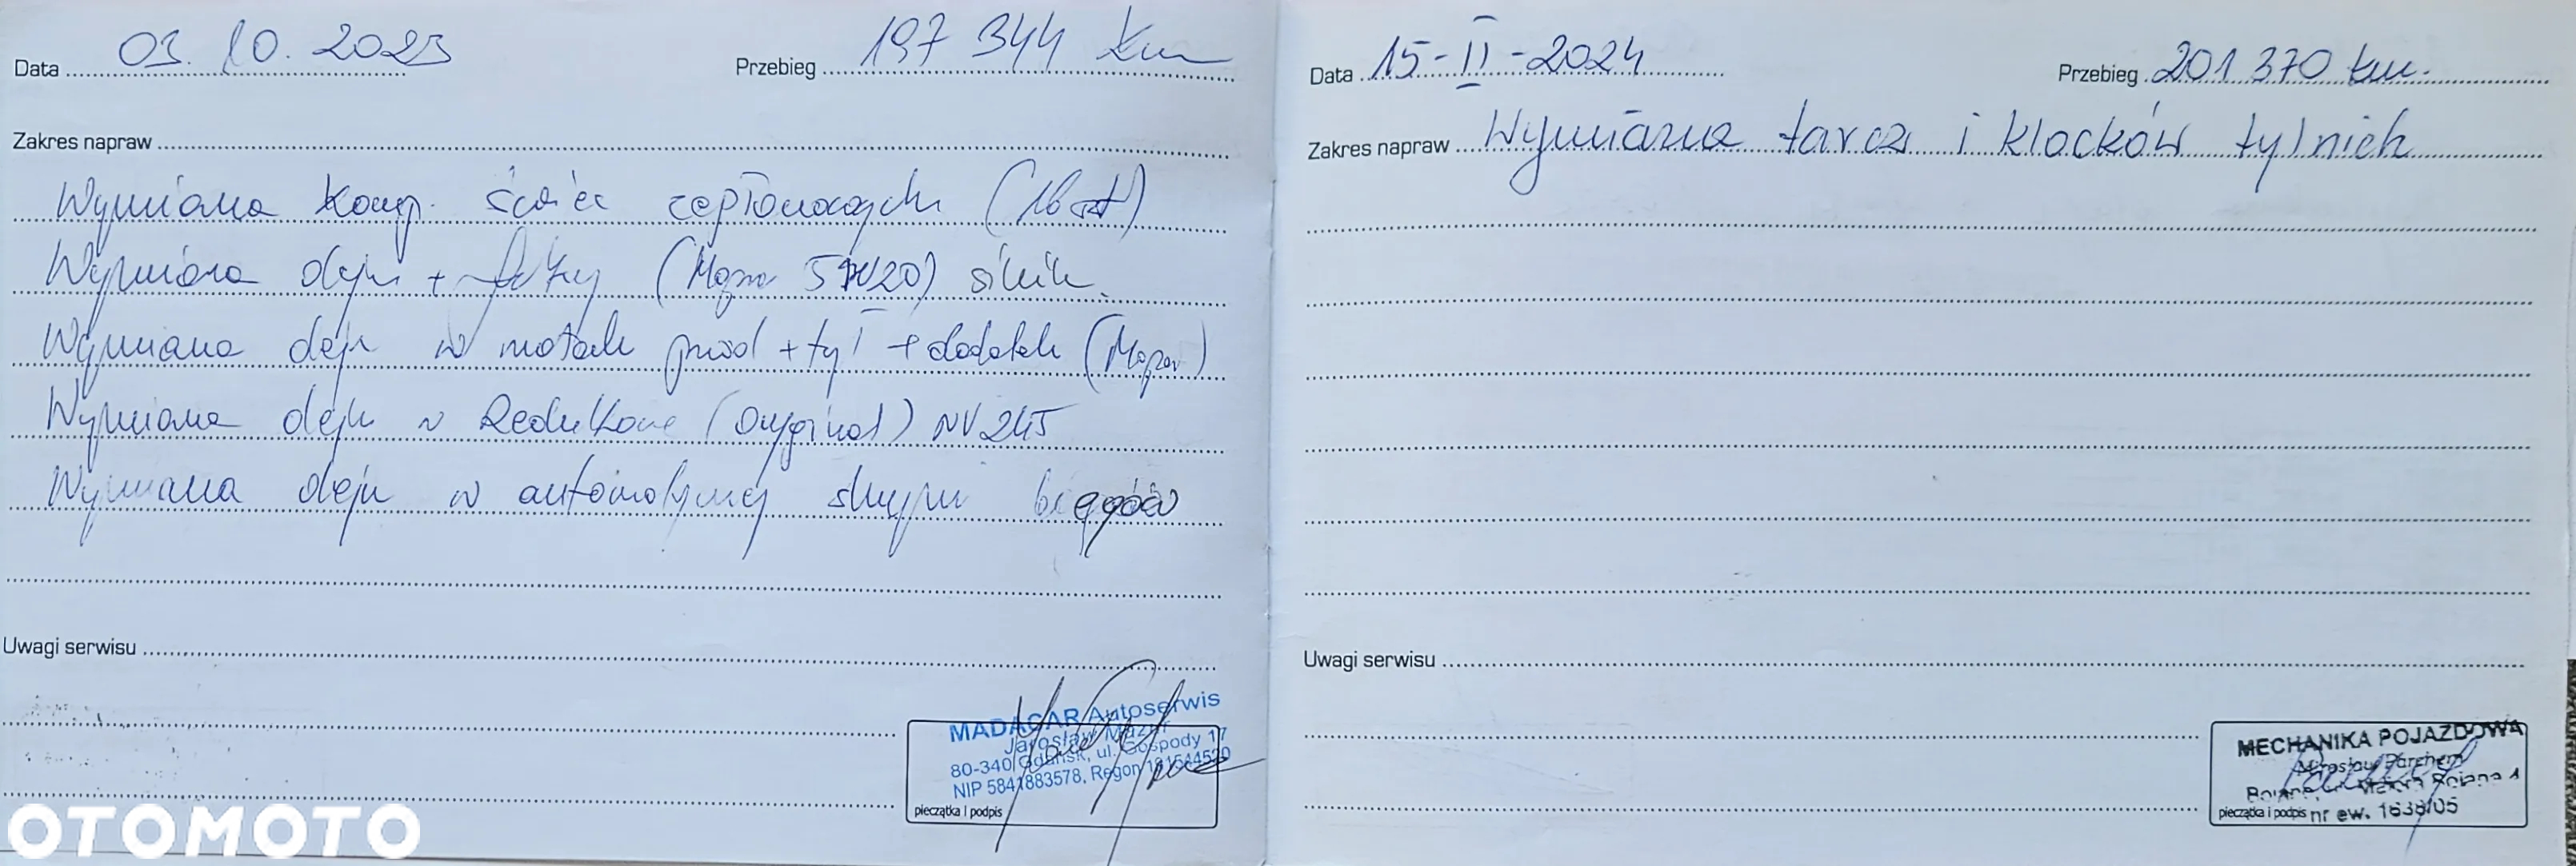 Data 03. 10. 2023 Przebieg 197 344 km
Zakres napraw
Wymiana komp. świec zapłonowych (16 szt)
Wymiana oleju + filtry (Mopar 5W20) silnik.
Wymiana oleju w mostach przód + tył + dodatek (Mopar)
Wymiana oleju w Reduktorze (Oryginał) NV245
Wymiana oleju w automatycznej skrzyni biegów
Uwagi serwisu
MADACAR Autoserwis
Jarosław Mazur
80-340 Gdańsk, ul. Gospody 17
NIP 5841883578, Regon 191544520
pieczątka i podpis
Data 15-II-2024 Przebieg 201 370 km.
Zakres napraw Wymiana tarcz i klocków tylnich
Uwagi serwisu
MECHANIKA POJAZDOWA
Mirosław Parchem
pieczątka i podpis nr ew. 1638/05
OTOMOTO